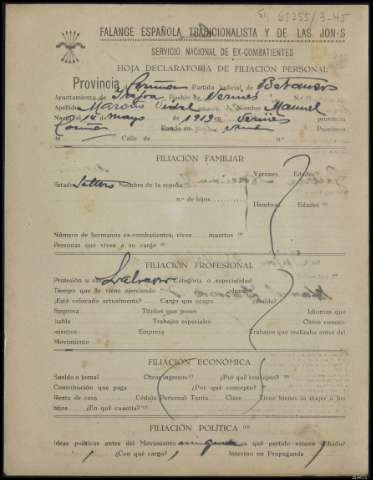 65255/3-45
FALANGE ESPAÑOLA TRADICIONALISTA Y DE LAS JON-S
SERVICIO NACIONAL DE EX-COMBATIENTES
HOJA DECLARATORIA DE FILIACIÓN PERSONAL
Provincia Coruña Partida Judicial de Betanzos
Ayuntamiento de Pueblo de
Apellidos Vidal Nombre Manuel
Nació el 14 de mayo de 1913 en provincia
Coruña
Calle de
FILIACIÓN FAMILIAR
Varones Edades
Estado Soltero Nombre de la esposa
n.º de hijos
Hembras Edades
Número de hermanos ex-combatientes; vivos muertos
Personas que viven a su cargo
FILIACIÓN PROFESIONAL
Profesión u Labrador Categoría o especialidad
Tiempo que la viene ejerciendo
¿Está colocado actualmente? Cargo que ocupa
Empresa Títulos que posee Idiomas que
habla Trabajos especiales Otros conoci-
mientos Empresa Trabajos que realizaba antes del
Movimiento
FILIACIÓN ECONÓMICA
Sueldo o jornal Otros ingresos ¿Por qué concepto?
Contribución que paga ¿Por qué concepto?
Renta de casa Cédula Personal Tarifa Clase Tiene bienes la mujer o los
hijos ¿En qué cuantía?
FILIACIÓN POLÍTICA
Ideas políticas antes del Movimiento ninguna a qué partido estuvo afiliado?
¿Con qué cargo? Intervino en Propaganda